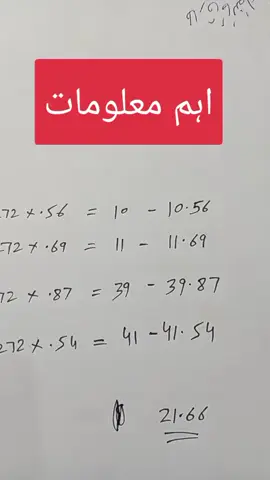 اہم معلومات
272 x .56 = 10 - 10.56
272 x .69 = 11 - 11.69
272 x .87 = 39 - 39.87
272 x .54 = 41 - 41.54
21.66